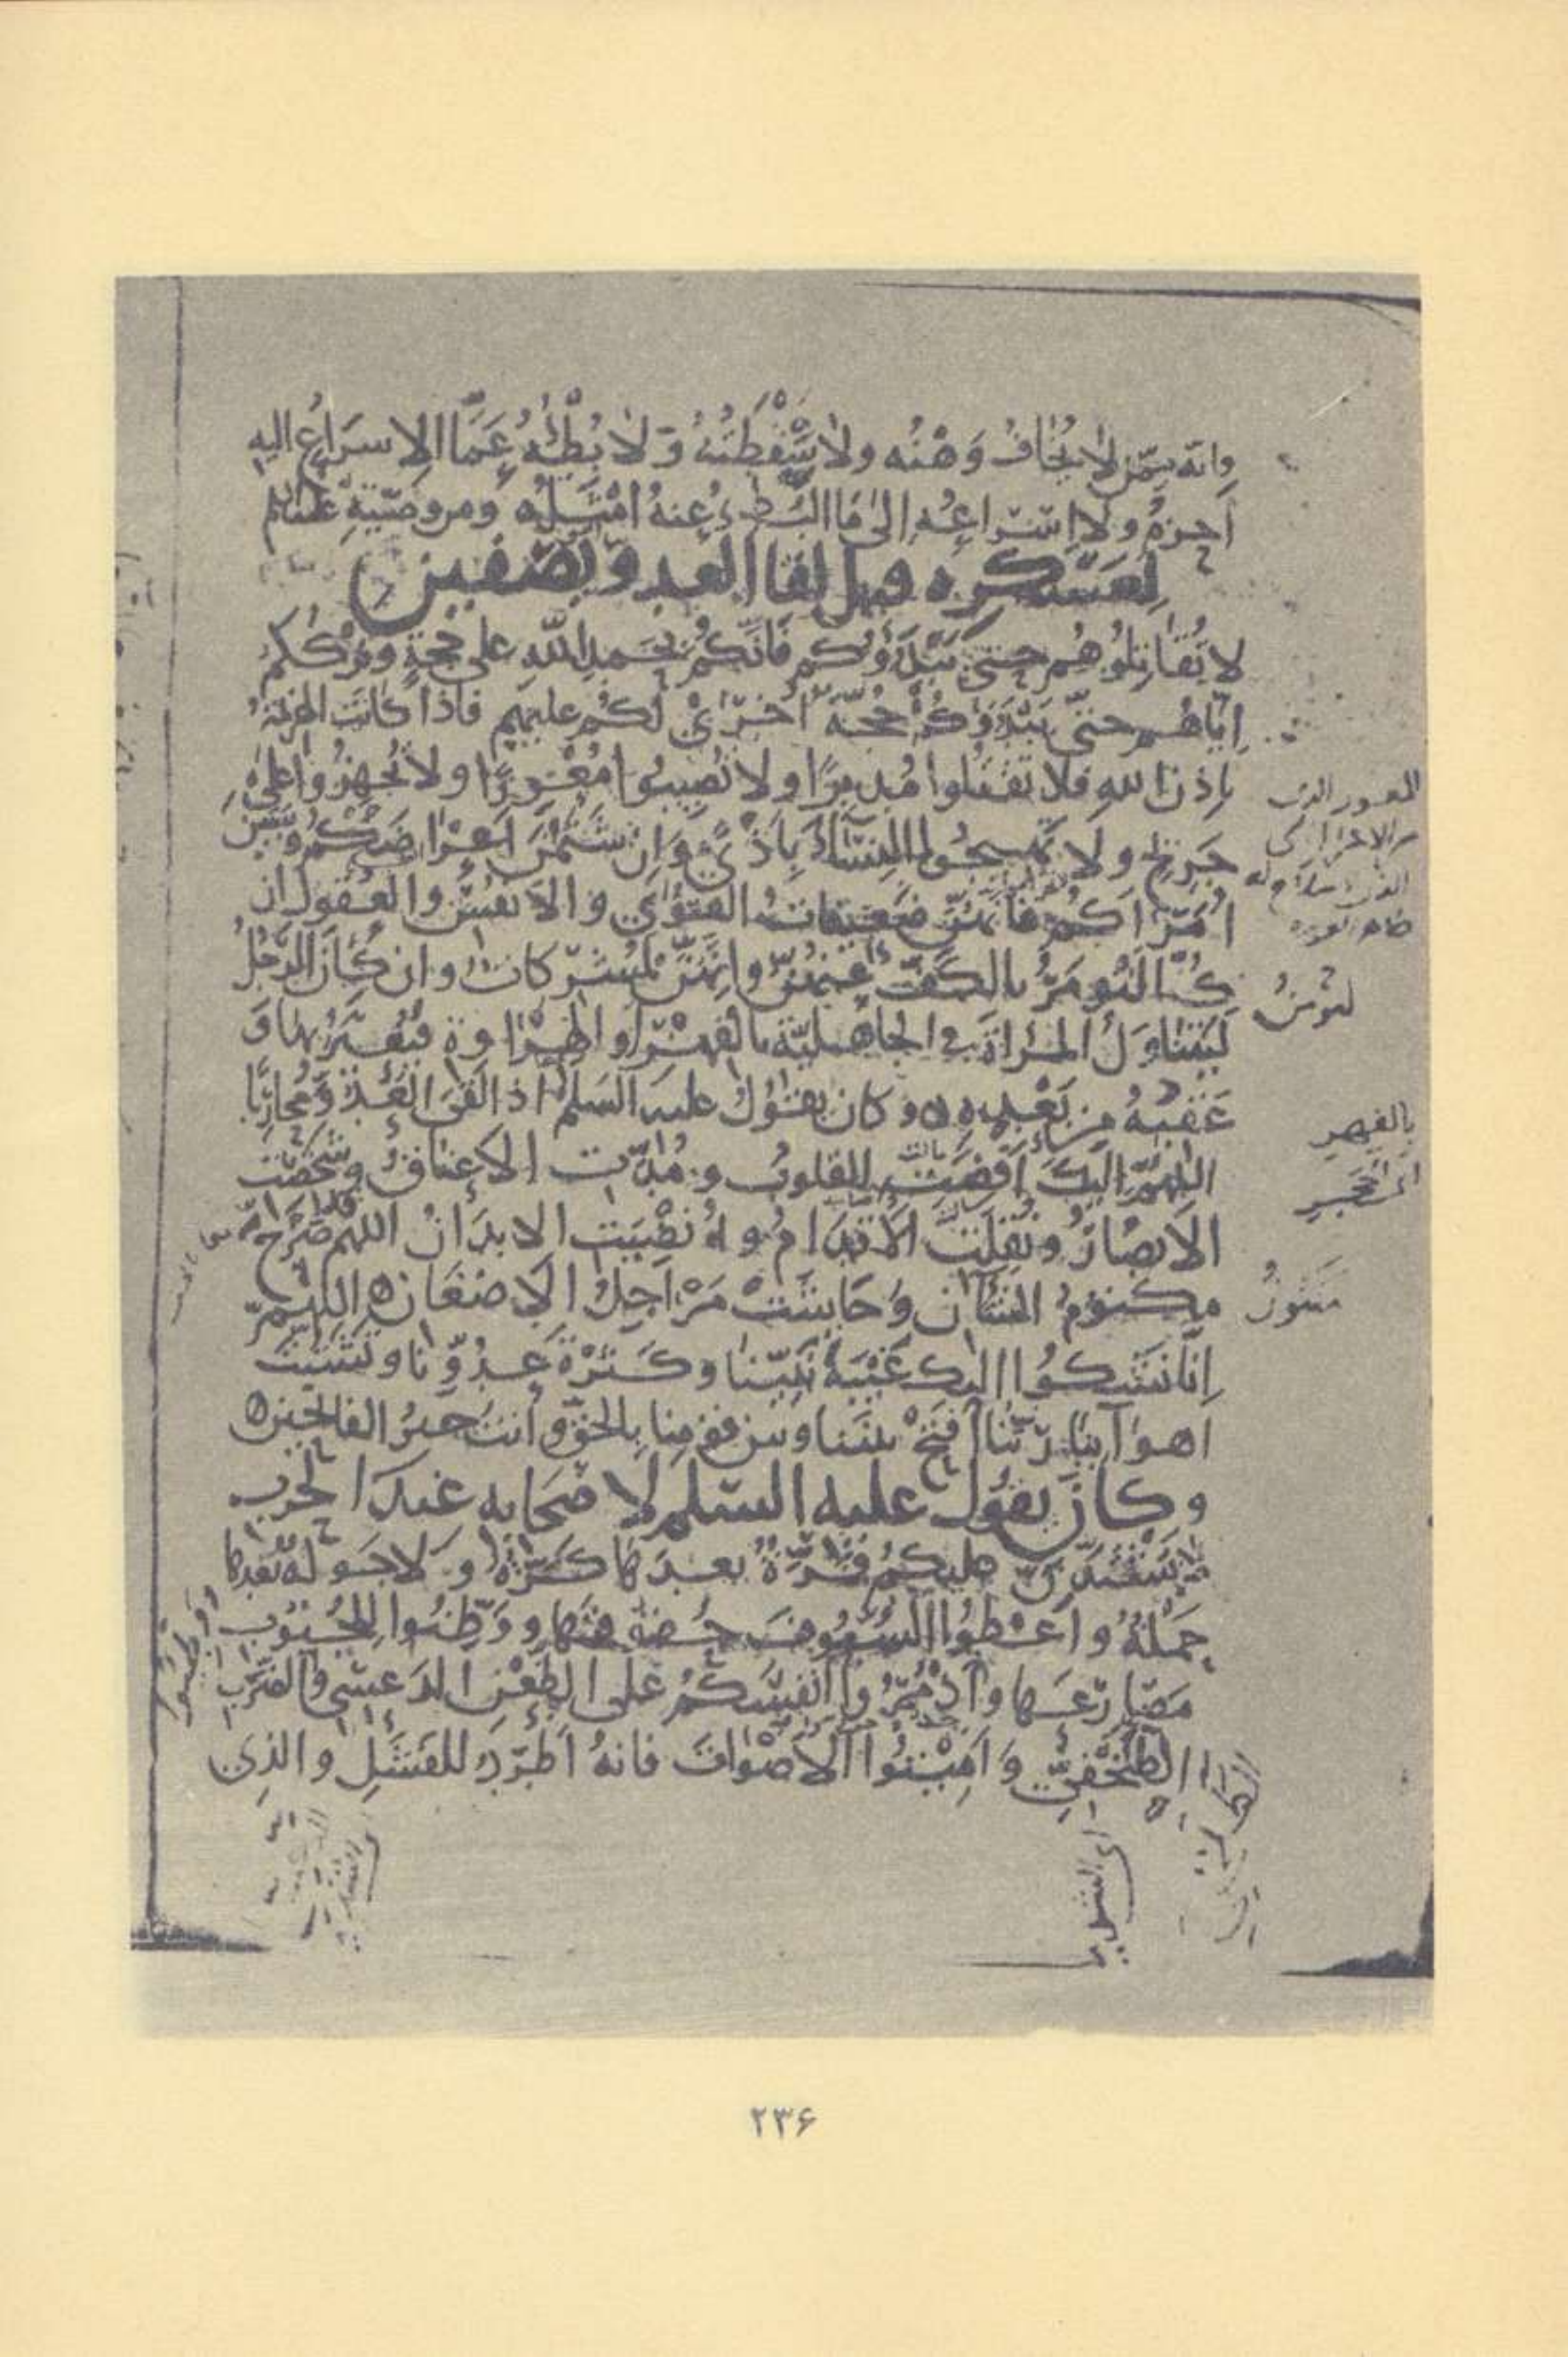 وانه ممّن لا يُخَافُ وَهْنُه ولا سَقْطَتُهُ وَلا بُطْئُه عَمَّا الاسرَاعُ اليه
احزمُ ولا اسراعُه الى مَا البُطء عنهُ امْثَلُ ومن وصيّته عليه السلم
لعسكره قبل لقا العدو بصفين
لا تُقَاتِلُوهُم حتى يَبْدَؤُكم فَانّكُم بحَمدِ اللهِ على حُجةٍ وتَرْكُكم
اِيّاهُم حتّى يَبْدَؤكُمْ حُجّةٌ اُخْرَىٰ لكُم عليهم فاذا كانَتِ الهزيمةُ
بِاِذنِ اللهِ فلا تقتُلوا مُدبِرًا ولا تُصِيبُوا مُعْوِرًا ولا تُجهِزُوا على
جَرِيحٍ ولا تَهيجُوا النِسَآءَ بِاَذًى وَاِن شَتَمْنَ اَعْرَاضَكُم وسَبَبْنَ
اُمَرَآكُم فانّهُنّ ضَعيفاتُ القُوَى والانفُسِ والعُقُول ان
كُنّا لنُومَرُ بالكَفِّ عنهُنّ وانّهُنّ لمُشركات وان كَانَ الرَجُلُ
ليَتَناوَلُ المَراةَ في الجاهليّة بالفِهْرِ او الهِرَاوة فيُعَيَّرُ بها وَ
عَقِبُهُ من بَعْدِه وكان يقُولُ عليه السَلم اذا لَقِىَ العَدُوَّ مُحارِبًا
اللهُمّ اليكَ اَفْضَتِ القلوبُ ومُدّتِ الاعناقُ وشَخَصَتِ
الابصَارُ ونُقِلَتِ الاَقدَامُ واُنْضِيَتِ الابدَانُ اللهم قد صَرّحَ
مكنومُ الشنآن وَجَاشَتْ مَرَاجِلُ الاضغَان اللهمّ
اِنّا نَشكُوا اليك غَيْبَةَ نَبِيّنا وكَثْرَةَ عدُوِّنا وتَشَتُّتَ
اهوَآئنا ربّنا افتَحْ بيننا وبين قومِنا بِالحقّ وانتَ خيرُ الفاتحين
وكان يقُولُ عليه السّلم لاصحَابه عندَ الحَرب
لا تَشْتَدّنّ عليكم فَرّةٌ بعدَها كَرّةٌ ولا جَولةٌ بَعْدَها
حَمْلةٌ واَعْطُوا السُيُوفَ حُقوقَها ووَطِّئُوا للجُنُوبِ
مَصَارِعَها واذْمُرُوا انفسَكُم علَى الطَعْنِ الدَعسِىّ والضَربِ
الطِلَخْفِىِّ وَاَمِيتُوا الاَصْوَاتَ فانهُ اَطْرَدُ للفَشَلِ والذِى
بالفِهرِ
اى الحجر
اى الشديد
۲۳۶